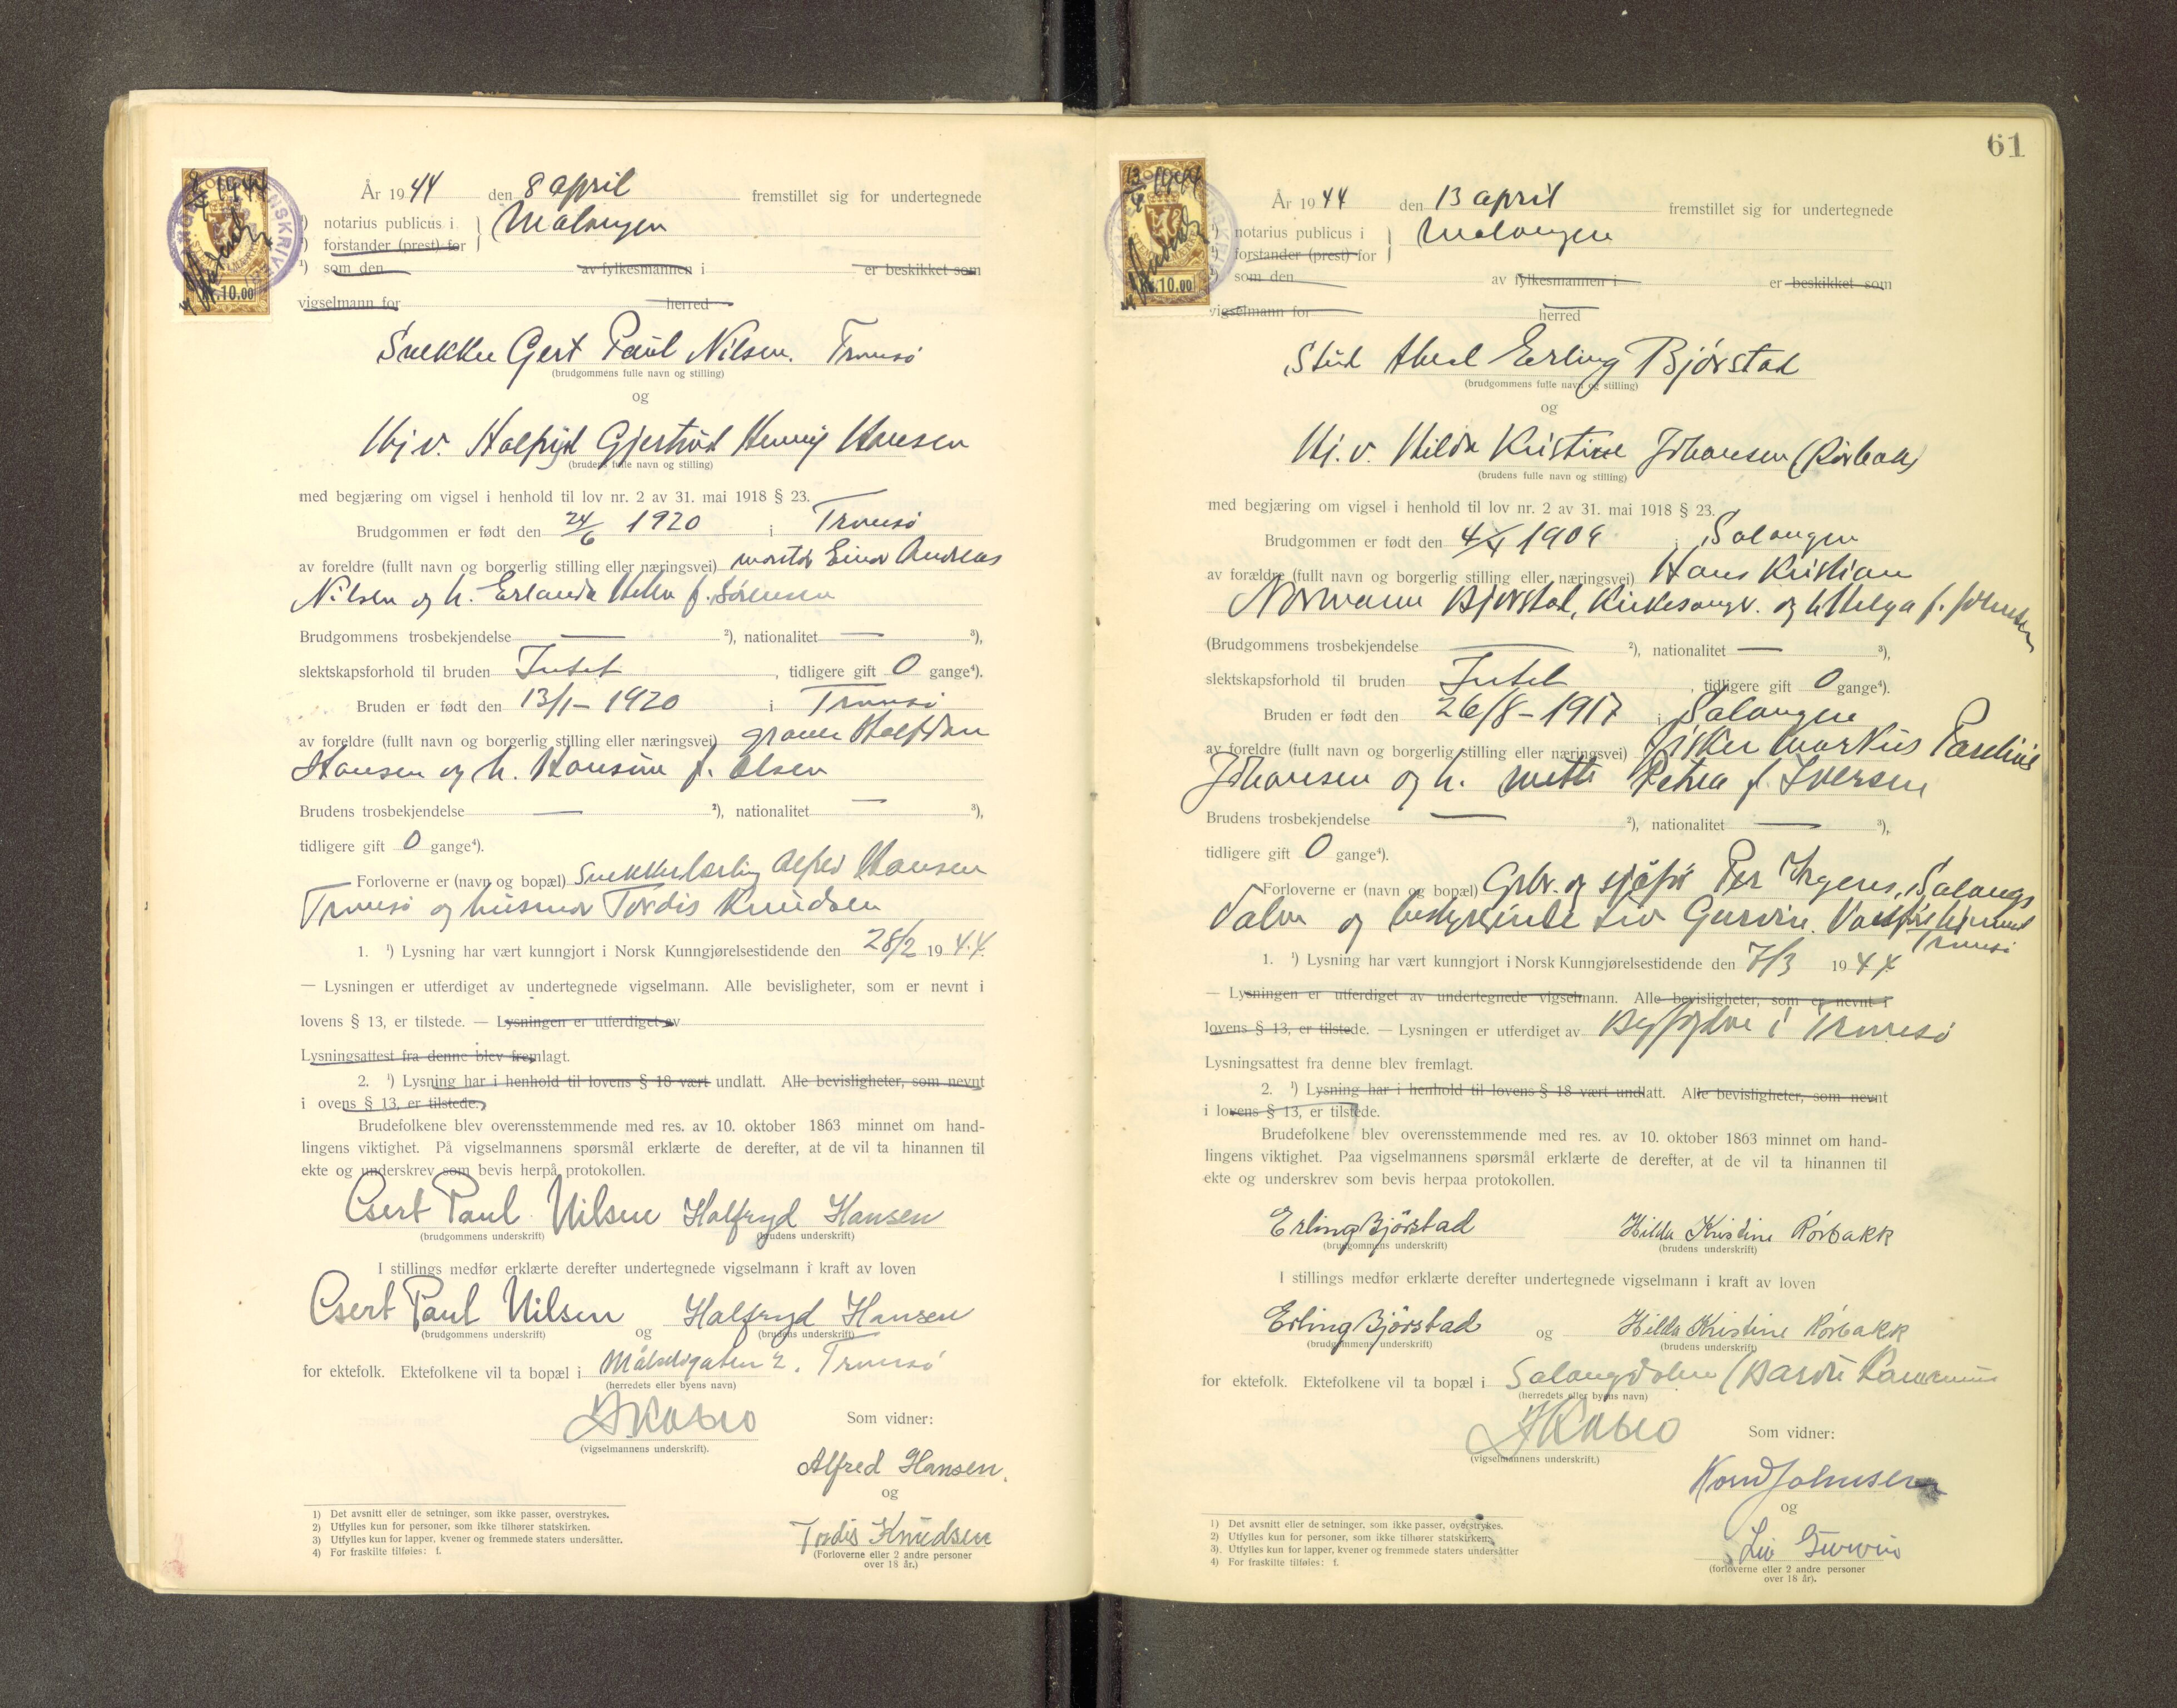 År 1944 den 8 april fremstillet sig for undertegnede
¹) notarius publicus i Malangen
¹) forstander (prest) for
¹) som den av fylkesmannen i er beskikket som
vigselmann for herred
10.00
Snekker Gert Paul Nilsen. Tromsö
(brudgommens fulle navn og stilling)
og
Hj v. Halfryd Gjertrud Henny Hansen
(brudens fulle navn og stilling)
med begjæring om vigsel i henhold til lov nr. 2 av 31. mai 1918 § 23.
Brudgommen er født den 24/6 1920 i Tromsö
av foreldre (fullt navn og borgerlig stilling eller næringsvei) montör Einar Andreas
Nilsen og h. Erlanda f. Sörensen
Brudgommens trosbekjendelse — ²), nationalitet — ³),
slektskapsforhold til bruden Intet, tidligere gift 0 gange⁴).
Bruden er født den 13/1 - 1920 i Tromsö
av foreldre (fullt navn og borgerlig stilling eller næringsvei) graver Halfdan
Hansen og h. Hansine f. Olsen
Brudens trosbekjendelse — ²), nationalitet — ³),
tidligere gift 0 gange⁴).
Forloverne er (navn og bopæl) Snekkerlærling Alfred Hansen
Tromsö og husmor Tordis Knudsen
1. ¹) Lysning har vært kunngjort i Norsk Kunngjørelsestidende den 28/2 1944.
— Lysningen er utferdiget av undertegnede vigselmann. Alle bevisligheter, som er nevnt i
lovens § 13, er tilstede. — Lysningen er utferdiget av
Lysningsattest fra denne blev fremlagt.
2. ¹) Lysning har i henhold til lovens § 18 vært undlatt. Alle bevisligheter, som nevnt
i ovens § 13, er tilstede.
Brudefolkene blev overensstemmende med res. av 10. oktober 1863 minnet om hand-
lingens viktighet. På vigselmannens spørsmål erklærte de derefter, at de vil ta hinannen til
ekte og underskrev som bevis herpå protokollen.
Gert Paul Nilsen Halfryd Hansen
(brudgommens underskrift) (brudens underskrift)
I stillings medfør erklærte derefter undertegnede vigselmann i kraft av loven
Gert Paul Nilsen og Halfryd Hansen
(brudgommens underskrift) (brudens underskrift)
for ektefolk. Ektefolkene vil ta bopæl i Målselvgaten 2. Tromsö
(herredets eller byens navn)
(vigselmannens underskrift).
Som vidner:
Alfred Hansen.
og
Tordis Knudsen
(Forloverne eller 2 andre personer
over 18 år.)
1) Det avsnitt eller de setninger, som ikke passer, overstrykes.
2) Utfylles kun for personer, som ikke tilhører statskirken.
3) Utfylles kun for lapper, kvener og fremmede staters undersåtter.
4) For fraskilte tilføies: f.
61
År 1944 den 13 april fremstillet sig for undertegnede
¹) notarius publicus i Malangen
¹) forstander (prest) for
¹) som den av fylkesmannen i er beskikket som
vigselmann for herred
10.00
Stud Erling Bjørstad
(brudgommens fulle navn og stilling)
og
Hj. v. Hilda Kristine Johansen (Rörbakk)
(brudens fulle navn og stilling)
med begjæring om vigsel i henhold til lov nr. 2 av 31. mai 1918 § 23.
Brudgommen er født den 4/4 1909 i Salangen
av forældre (fullt navn og borgerlig stilling eller næringsvei) Hans Kristian
Normann Bjørstad, Kirkesanger. og h Helga f. Johnsen
(Brudgommens trosbekjendelse — ²), nationalitet — ³),
slektskapsforhold til bruden Intet, tidligere gift 0 gange⁴).
Bruden er født den 26/8 - 1917 i Salangen
av foreldre (fullt navn og borgerlig stilling eller næringsvei) fisker Markus Parelius
Johansen og h. Mette Petrea f. Iversen
Brudens trosbekjendelse — ²), nationalitet — ³),
tidligere gift 0 gange⁴).
Forloverne er (navn og bopæl) Grbr. og sjåför Per Salangs
dalen og bestyrerinde Liv
Tromsö
1. ¹) Lysning har vært kunngjort i Norsk Kunngjørelsestidende den 7/3 1944
— Lysningen er utferdiget av undertegnede vigselmann. Alle bevisligheter, som er nevnt i
lovens § 13, er tilstede. — Lysningen er utferdiget av Byfogden i Tromsö
Lysningsattest fra denne blev fremlagt.
2. ¹) Lysning har i henhold til lovens § 18 vært undlatt. Alle bevisligheter, som nevnt
i lovens § 13, er tilstede.
Brudefolkene blev overensstemmende med res. av 10. oktober 1863 minnet om hand-
lingens viktighet. Paa vigselmannens spørsmål erklærte de derefter, at de vil ta hinannen til
ekte og underskrev som bevis herpaa protokollen.
Erling Bjørstad Hilda Kristine Rörbakk
(brudgommens underskrift) (brudens underskrift)
I stillings medfør erklærte derefter undertegnede vigselmann i kraft av loven
Erling Bjørstad og Hilda Kristine Rörbakk
(brudgommens underskrift) (brudens underskrift)
for ektefolk. Ektefolkene vil ta bopæl i Salangsdalen (Bardu
(herredets eller byens navn)
(vigselmannens underskrift.)
Som vidner:
Johnsen
og
Liv
(forloverne eller 2 andre personer
over 18 år).
1) Det avsnitt eller de setninger, som ikke passer, overstrykes.
2) Utfylles kun for personer, som ikke tilhører statskirken.
3) Utfylles kun for lapper, kvener og fremmede staters undersåtter
4) For fraskilte tilføies: f.